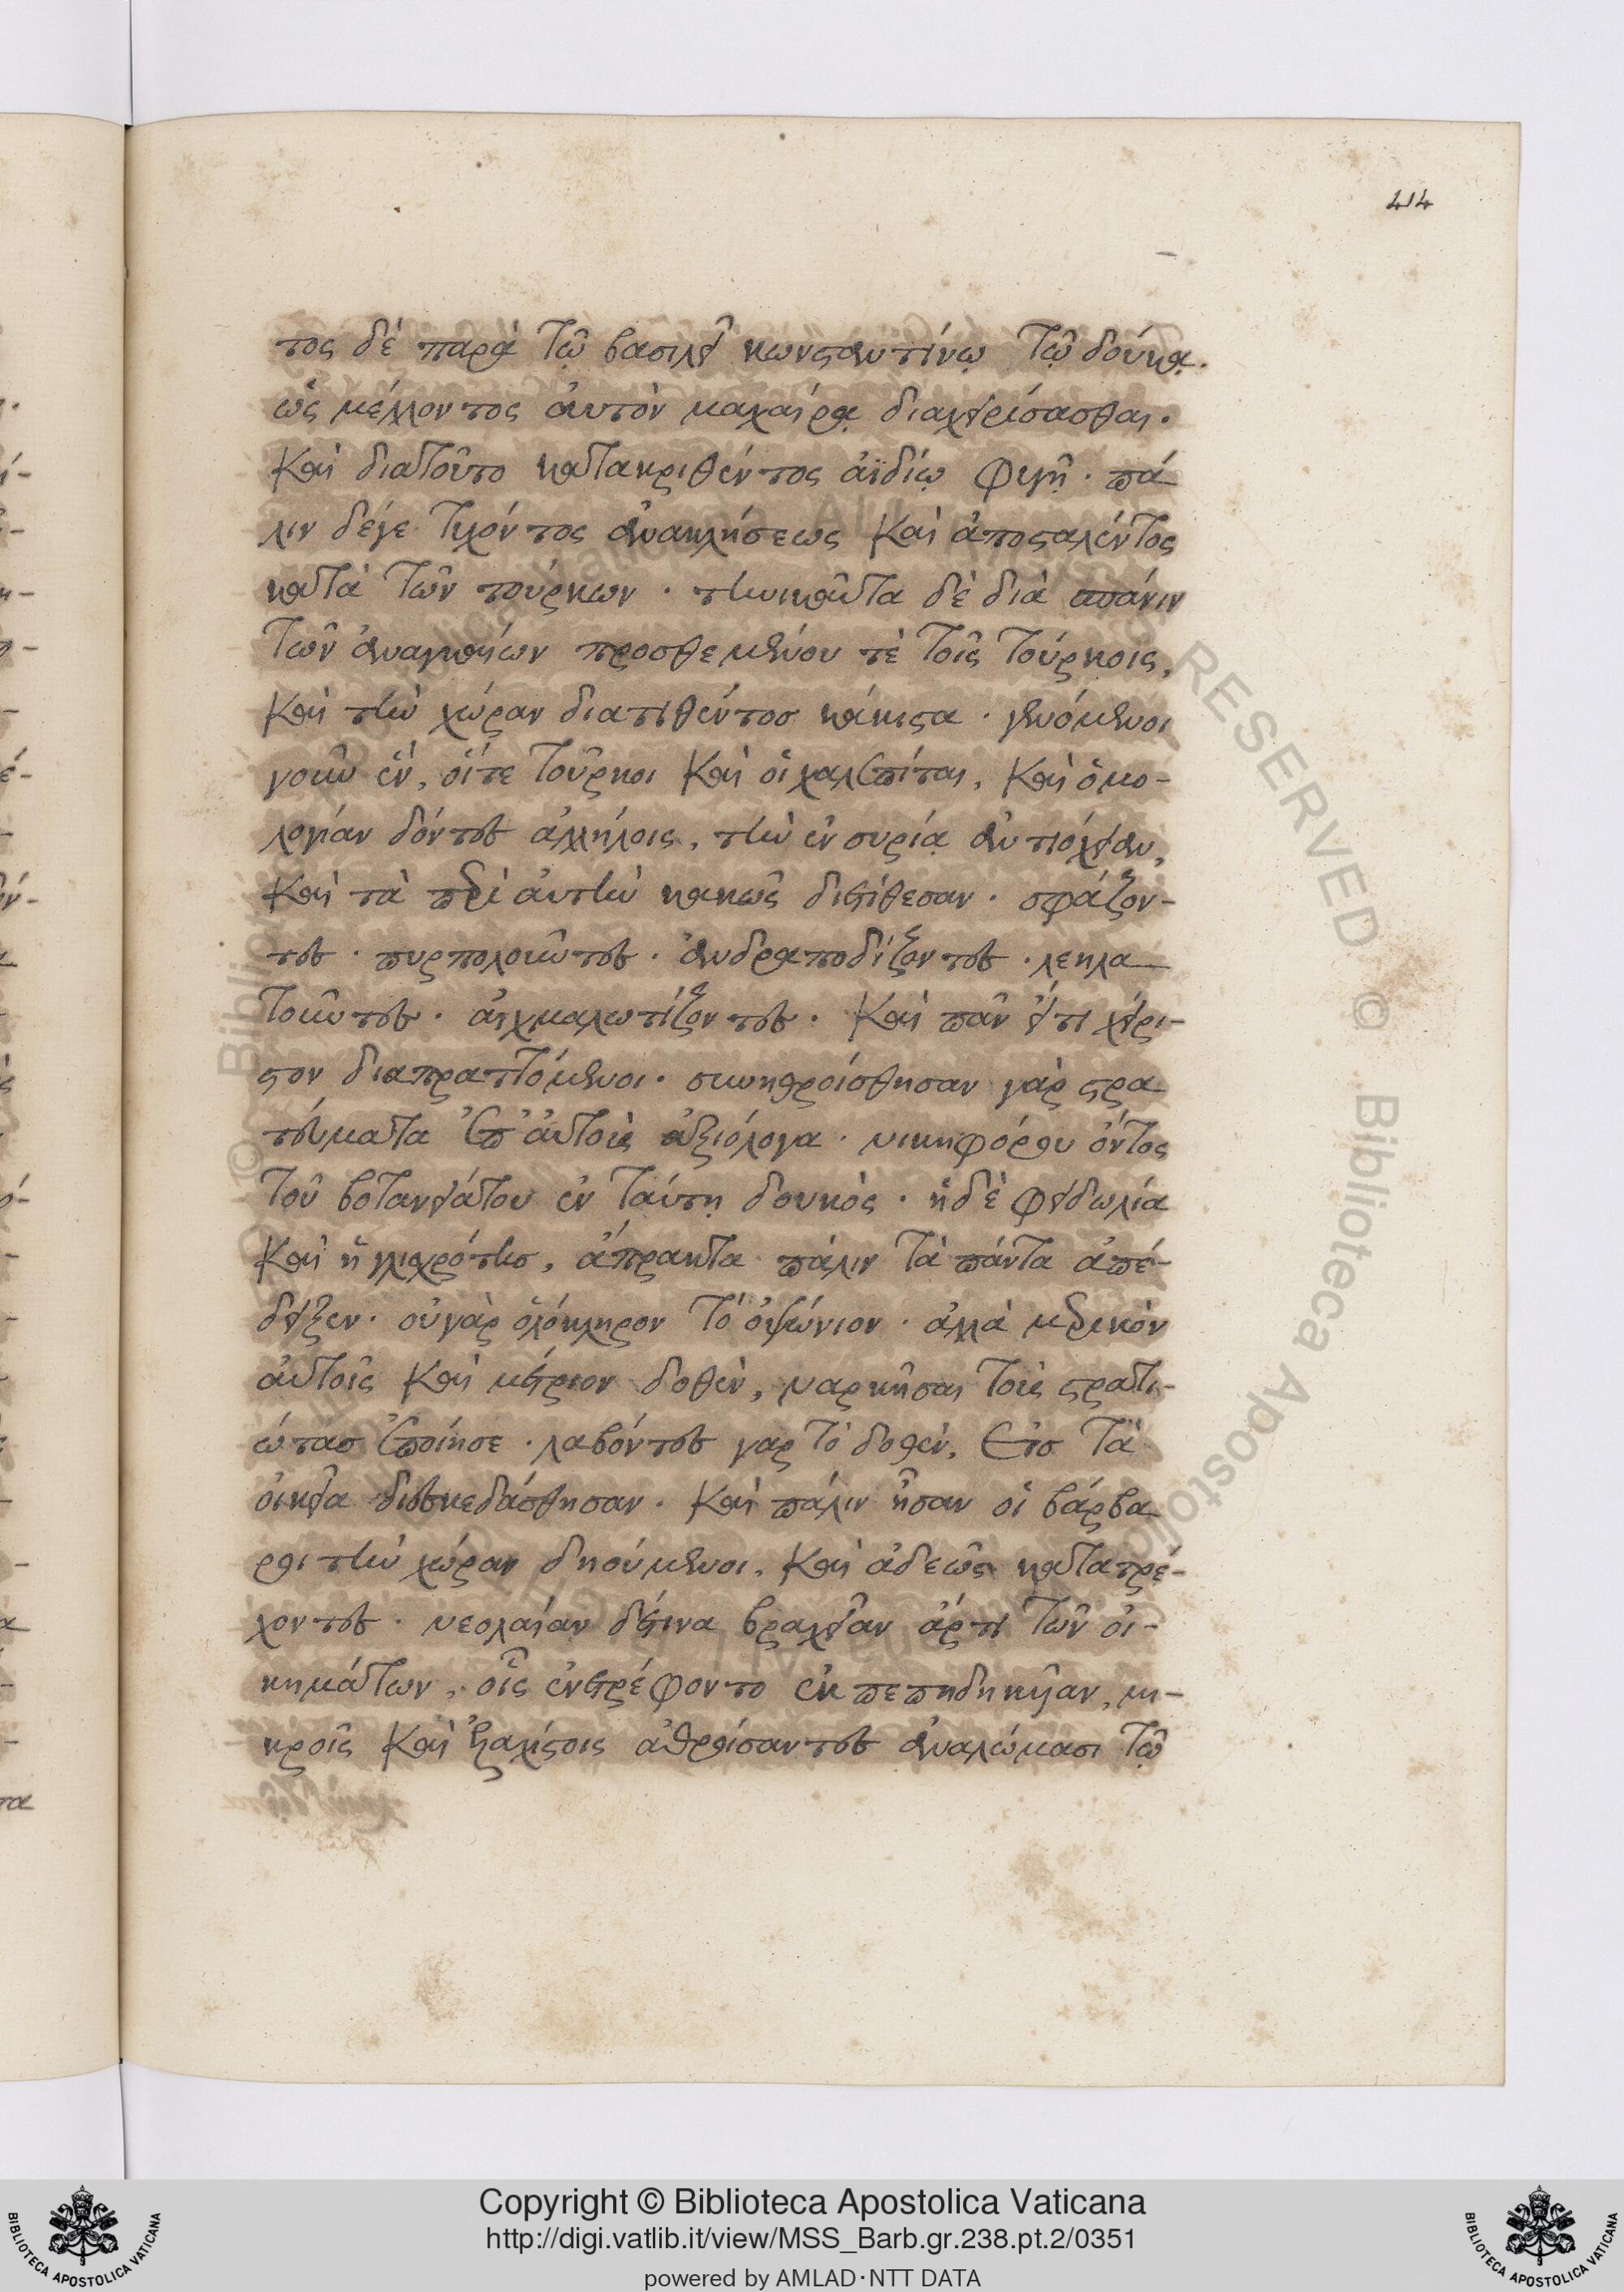 414
τος δὲ παρὰ τῷ βασιλεῖ κωνσταντίνῳ τῷ δούκᾳ.
ὡς μέλλοντος ἀυτὸν μαχαίρᾳ διαχειρίσασθαι.
καὶ διατοῦτο κατακριθέντος ἀϊδίῳ φυγῇ. πά
λιν δέγε τυχόντος ἀνακλήσεως καὶ ἀποσταλέντος
κατὰ τῶν τούρκων. τηνικαῦτα δὲ διὰ σπάνιν
τῶν ἀναγκαίων προσθεμένου τὲ τοῖς τούρκοις,
καὶ τὴν χώραν διατιθέντος κάκιστα. γενόμενοι
γοῦν ἓν, οἵτε τοῦρκοι καὶ οἱ χαλεπῖται, καὶ ὁμο-
λογίαν δόντες ἀλλήλοις, τὴν ἐν συρίᾳ ἀντιόχειαν,
καὶ τὰ περὶ ἀυτὴν κακῶς διετίθεσαν. σφάζον-
τες. πυρπολοῦντες. ἀνδραποδίζοντες. λεηλα
τοῦντες. ἀιχμαλωτίζοντες. καὶ πᾶν εἴτι χείρι-
στον διαπραττόμενοι. συνηθροίσθησαν γὰρ στρα
τεύματα ἐπ ἀυτοὺς ἀξιόλογα. νικηφόρου ὄντος
τοῦ βοτανειάτου ἐν ταύτῃ δουκὸς. ἡ δὲ φειδωλία
καὶ ἡ γλισχρότης, ἄπρακτα πάλιν τὰ πάντα ἀπέ-
δειξεν. οὐγὰρ ὁλόκληρον τὸ ὀψώνιον. ἀλλὰ μερικὸν
ἀυτοῖς καὶ μέτριον δοθὲν, ναρκῆσαι τοὺς στρατι-
ώτας ἐποίησε. λαβόντες γαρ τὸ δοθὲν, εἰς τὰ
οἰκεῖα διεσκεδάσθησαν. καὶ πάλιν ἦσαν οἱ βάρβα
ροι τὴν χώραν δηούμενοι, καὶ ἀδεῶς κατατρέ-
χοντες. νεολαίαν δέτινα βραχεῖαν ἄρτι τῶν ὀι-
κημάτων, οἷς ἐνετρέφοντο ἐκπεπηδηκυῖαν, μι-
κροῖς καὶ ἐξαλίστοις ἀθροίσαντες ἀναλώμασι τῷ
Copyright © Biblioteca Apostolica Vaticana
http://digi.vatlib.it/view/MSS_Barb.gr.238.pt.2/0351
powered by AMLAD·NTT DATA
BIBLIOTECA APOSTOLICA VATICANA
BIBLIOTECA APOSTOLICA VATICANA